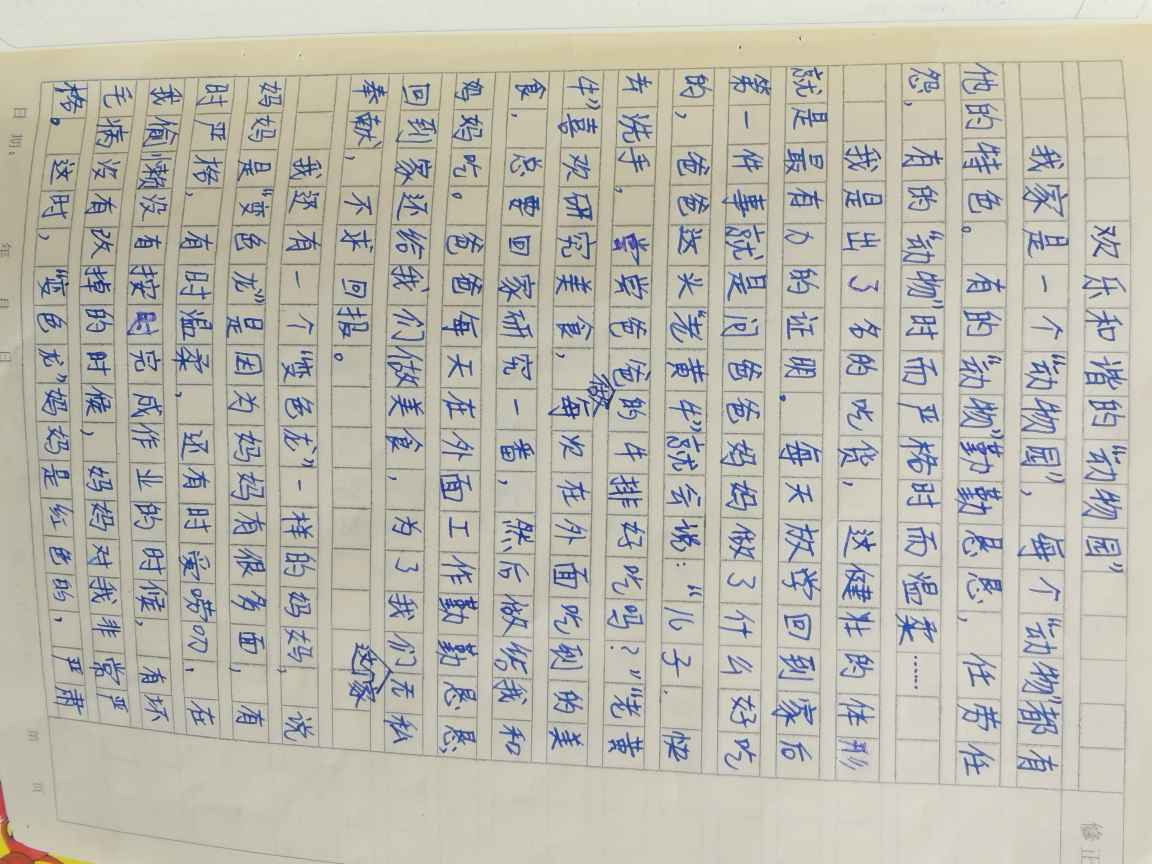 欢乐和谐的“动物园”
我家是一个“动物园”，每个“动物”都有
他的特色。有的“动物”勤勤恳恳，任劳任
怨，有的“动物”时而严格时而温柔……
我是出了名的吃货，这健壮的体形
就是最有力的证明。每天放学回到家后
第一件事就是问爸爸妈妈做了什么好吃
的，爸爸这头“老黄牛”就会说：“儿子，快
去洗手，尝尝爸爸做的牛排好吃吗？”“老黄
牛”喜欢研究美食，每次在外面吃到的美
食，总要回家研究一番，然后做给我和
妈妈吃。爸爸每天在外面工作勤勤恳恳，
回到家还给我们做美食，为了我们这个家无私
奉献，不求回报。
我还有一个“变色龙”一样的妈妈，说
妈妈是“变色龙”是因为妈妈有很多面，有
时严格，有时温柔，还有时爱唠叨，在
我偷懒没有按时完成作业的时候，有坏
毛病没有改掉的时候，妈妈对我非常严
格。这时，“变色龙”妈妈是红色的，严肃
日期：
年 月 日
第 页